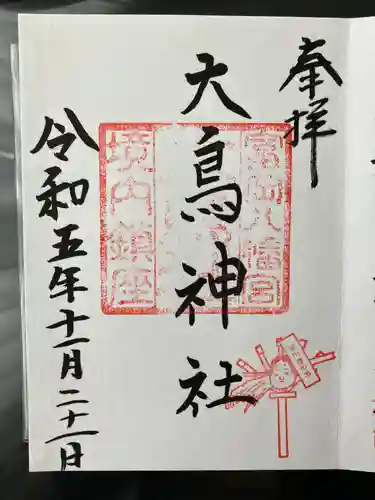 奉拝
大鳥神社
令和五年十一月二十一日
富岡八幡宮
境内鎮座